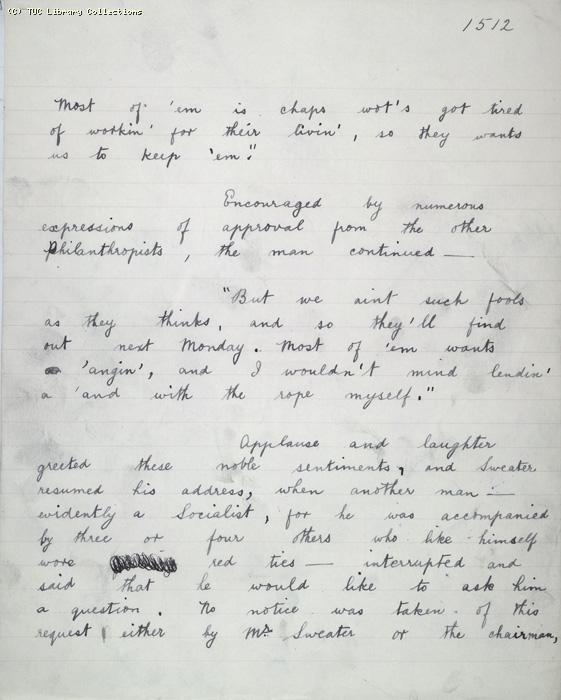 (C) TUC Library Collections
1512
Most of 'em is chaps wot's got tired
of workin' for their livin', so they wants
us to keep 'em."
Encouraged by numerous
expressions of approval from the other
Philanthropists, the man continued —
"But we aint such fools
as they thinks, and so they'll find
out next Monday. Most of 'em wants
'angin', and I wouldn't mind lendin'
a 'and with the rope myself."
Applause and laughter
greeted these noble sentiments, and Sweater
resumed his address, when another man —
evidently a Socialist, for he was accompanied
by three or four others who like himself
wore red ties — interrupted and
said that he would like to ask him
a question. No notice was taken of this
request either by Mr Sweater or the chairman,